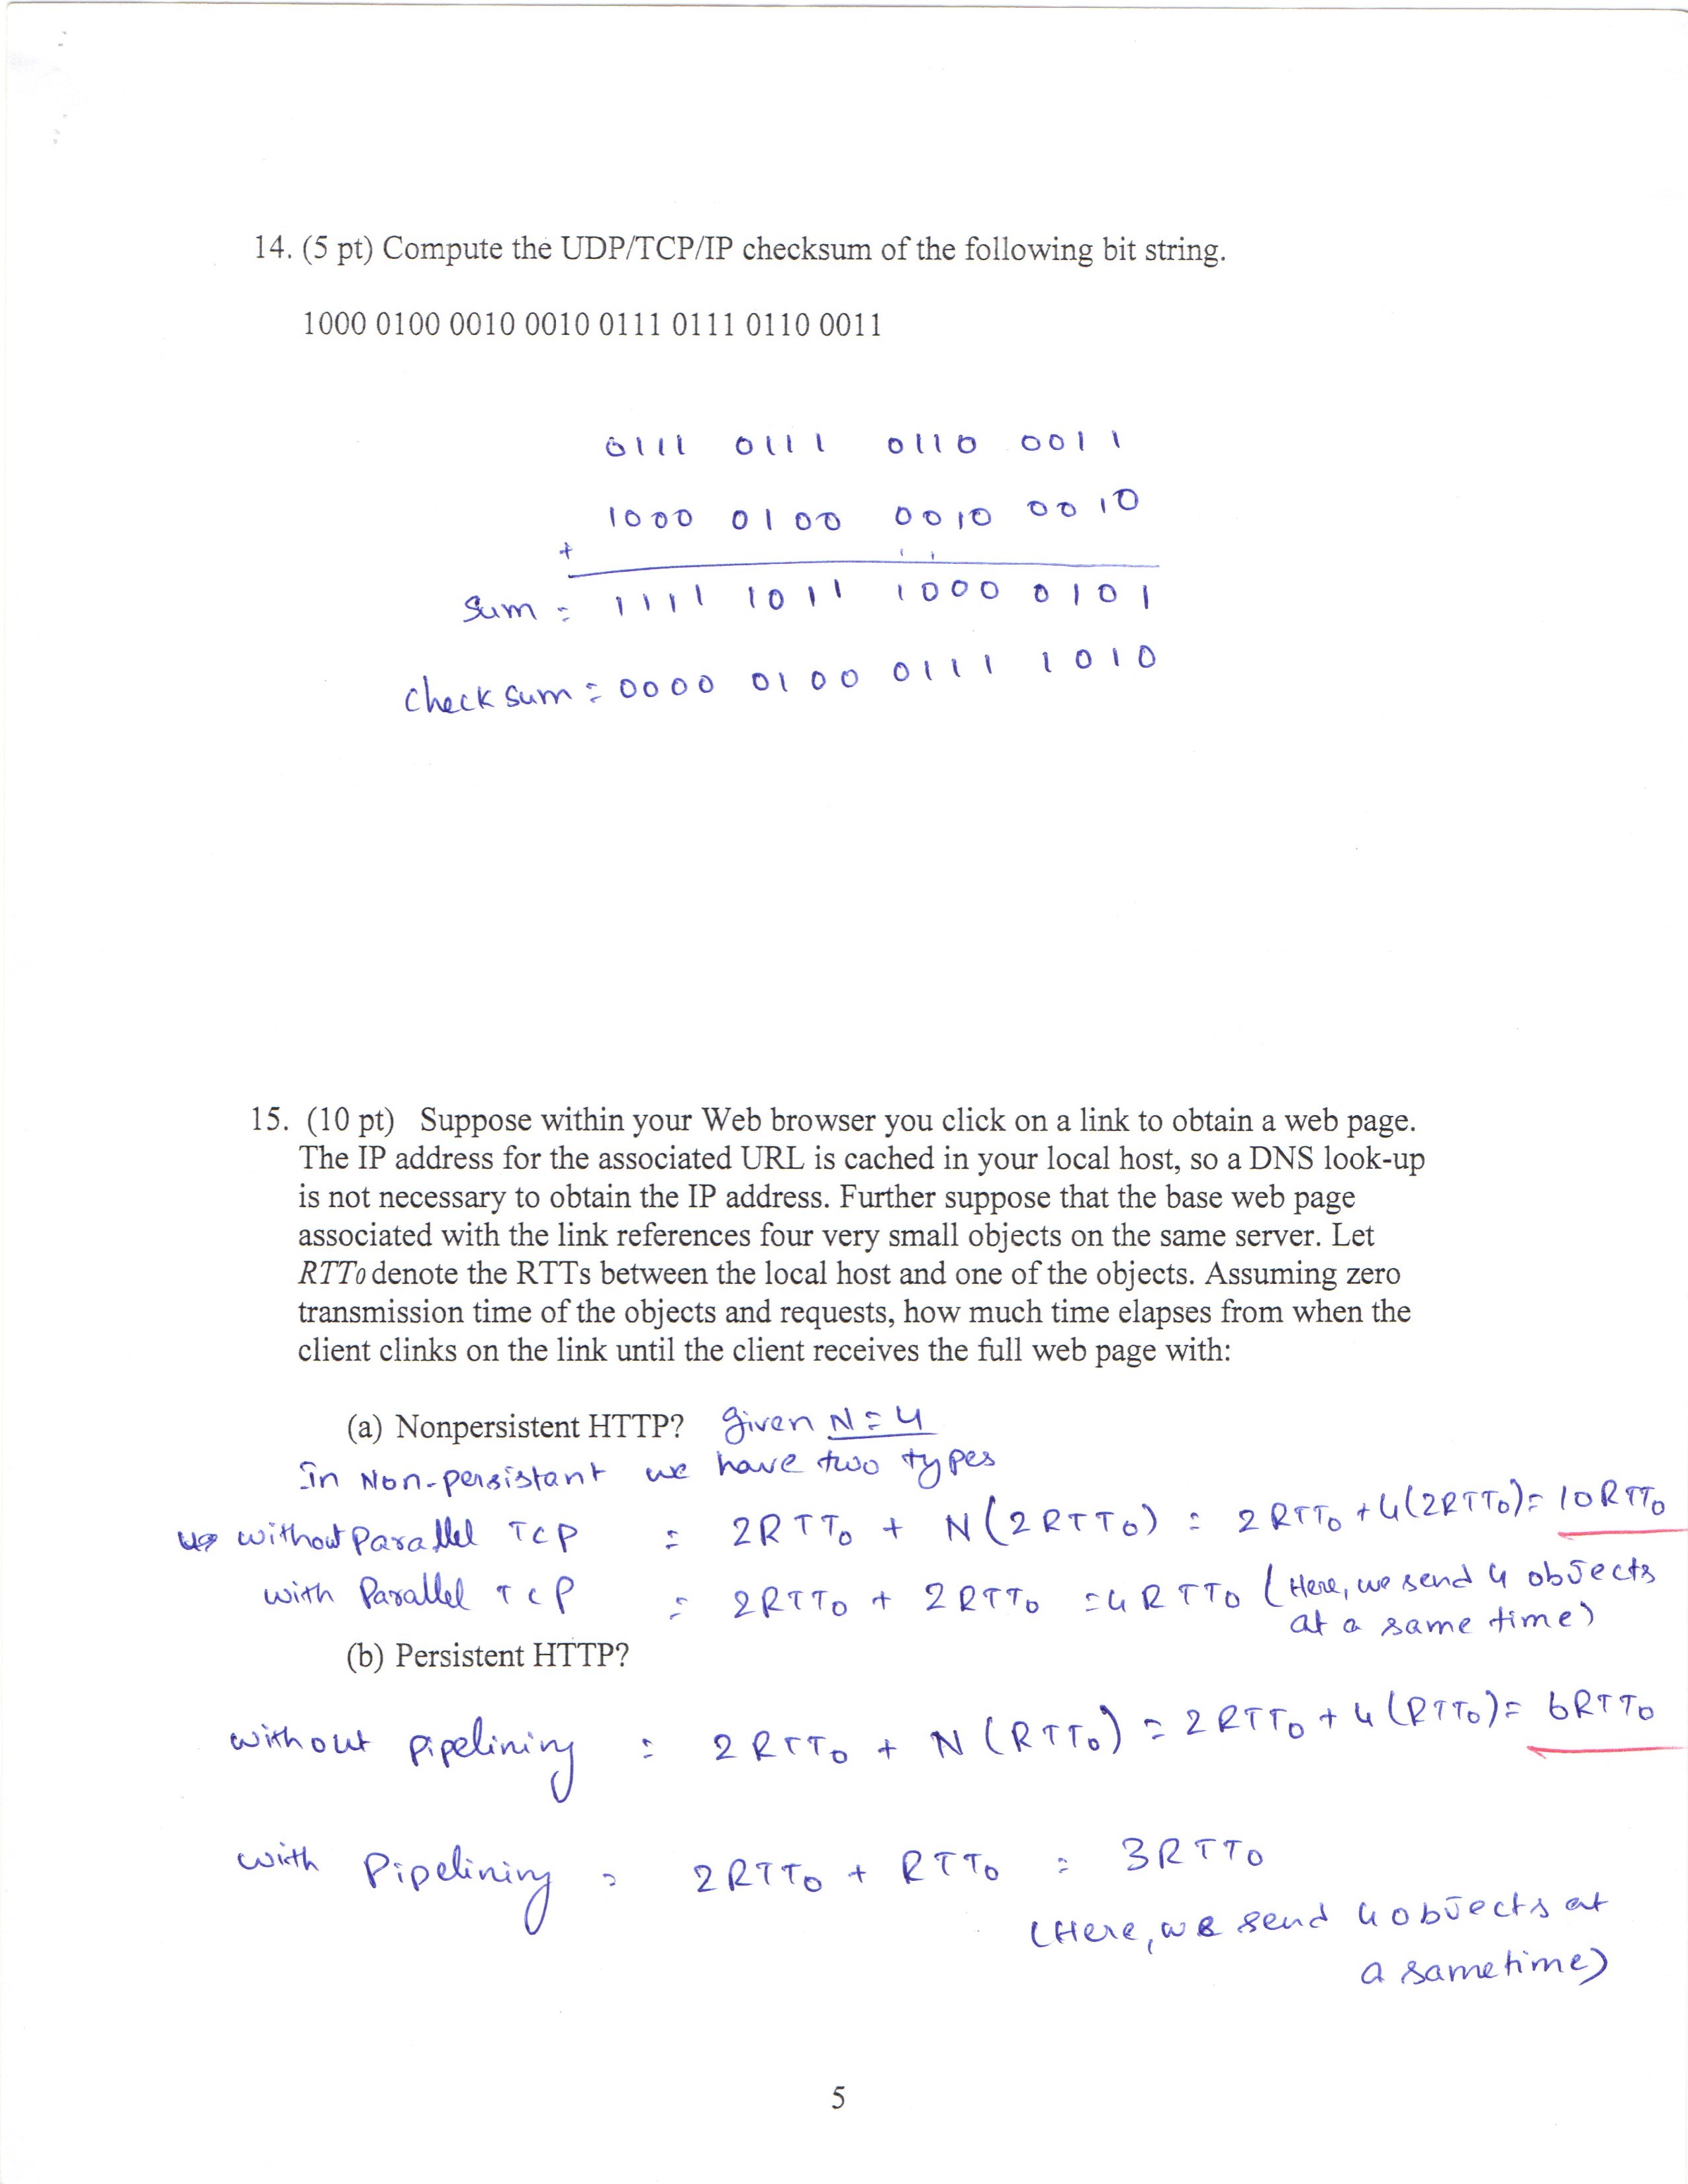 14. (5 pt) Compute the UDP/TCP/IP checksum of the following bit string.
1000 0100 0010 0010 0111 0111 0110 0011
0111 0111 0110 0011
1000 0100 0010 0010
+
1 1
Sum = 1111 1011 1000 0101
Checksum = 0000 0100 0111 1010
15. (10 pt) Suppose within your Web browser you click on a link to obtain a web page.
The IP address for the associated URL is cached in your local host, so a DNS look-up
is not necessary to obtain the IP address. Further suppose that the base web page
associated with the link references four very small objects on the same server. Let
RTT0 denote the RTTs between the local host and one of the objects. Assuming zero
transmission time of the objects and requests, how much time elapses from when the
client clinks on the link until the client receives the full web page with:
(a) Nonpersistent HTTP? Given N=4
In Non-persistant we have two types
without Parallel TCP = 2RTT0 + N(2RTT0) = 2RTT0 +4(2RTT0)= 10RTT0
with Parallel TCP = 2RTT0 + 2RTT0 =4RTT0 (Here, we send 4 objects
at a same time)
(b) Persistent HTTP?
without pipelining = 2RTT0 + N(RTT0) = 2RTT0+4(RTT0)= 6RTT0
with Pipelining = 2RTT0 + RTT0 = 3RTT0
(Here, we send 4 objects at
a sametime)
5